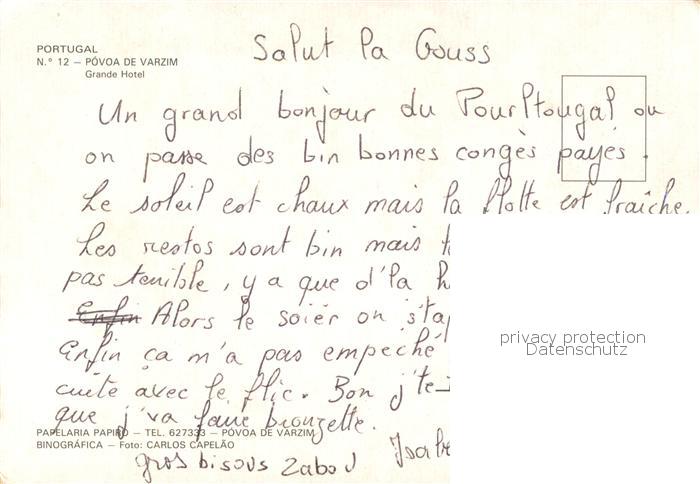 PORTUGAL
N.° 12 — PÓVOA DE VARZIM
Grande Hotel
Salut la Gouss
Un grand bonjour du Pourltougal ou
on passe des bin bonnes congès payés.
Le soleil est chaux mais la flotte est fraîche.
Les restos sont bin mais
pas tenible, y a que d'la
Enfin Alors le soièr on
Enfin ça m'a pas empeché
cuite avec le flic. Bon j'te
que j'va faire bronzette.
PAPELARIA PAPIRO — TEL. 627333 — PÓVOA DE VARZIM
BINOGRÁFICA — Foto: CARLOS CAPELÃO
gros bisous Zabou
privacy protection
Datenschutz